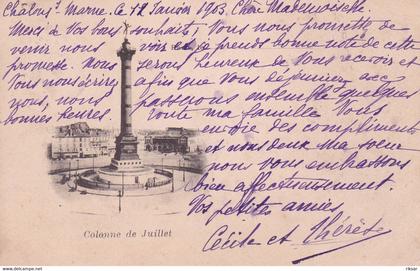 Châlons s. Marne. le 12 Janvier 1903. Chère Mademoiselle
Merci de Vos bons souhaits, Vous nous promettez de
venir nous voir et je prends bonne note de cette
promesse. Nous serons heureux de Vous recevoir et
Vous nous écrirez afin que Vous déjeuniez avec
nous, nous passerons ensemble quelques
bonnes heures. Toute ma famille Vous
envoie des compliments
et nous deux ma sœur
nous Vous embrassons
bien affectueusement.
Vos petites amies
Cécile et Thérèse
Colonne de Juillet